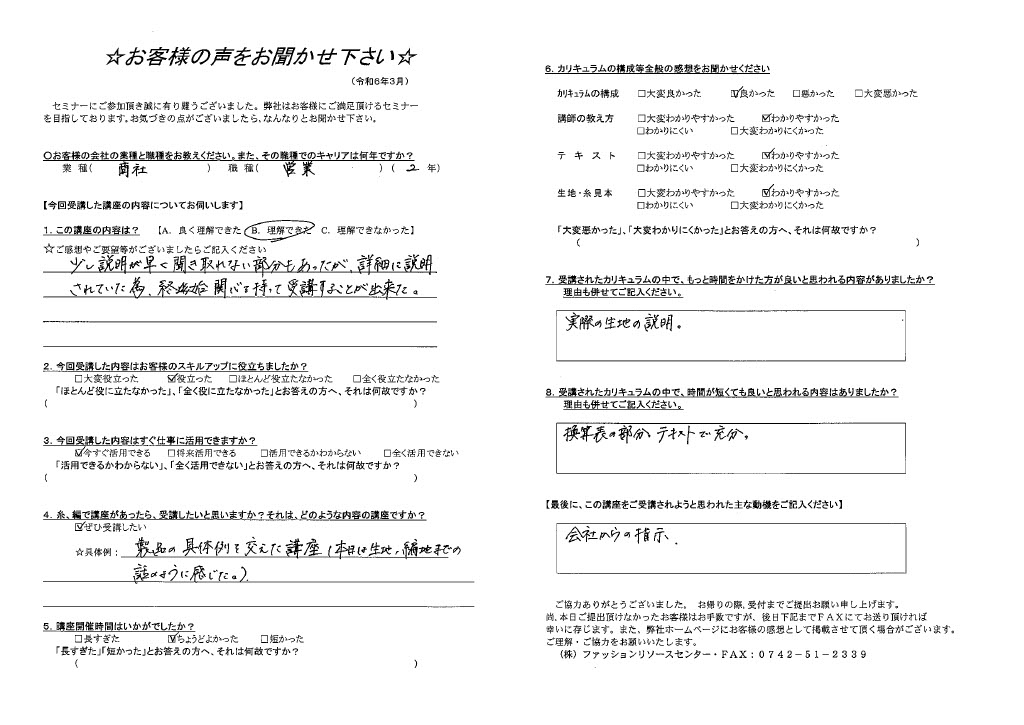 ☆お客様の声をお聞かせ下さい☆
（令和6年3月）
セミナーにご参加頂き誠に有り難うございました。弊社はお客様にご満足頂けるセミナー
を目指しております。お気づきの点がございましたら、なんなりとお聞かせ下さい。
〇お客様の会社の業種と職種をお教えください。また、その職種でのキャリアは何年ですか？
業 種（ 商社 ） 職 種（ 営業 ）（ 2 年）
【今回受講した講座の内容についてお伺いします】
1．この講座の内容は？ 【A．良く理解できた B．理解できた C．理解できなかった】
☆ご感想やご要望等がございましたらご記入ください
少し説明が早く聞き取れない部分もあったが、詳細に説明
されていた為、終始始 関心を持って受講することが出来た。
2．今回受講した内容はお客様のスキルアップに役立ちましたか？
□大変役立った ☑役立った □ほとんど役立たなかった □全く役立たなかった
「ほとんど役に立たなかった」、「全く役に立たなかった」とお答えの方へ、それは何故ですか？
（ ）
3．今回受講した内容はすぐ仕事に活用できますか？
☑今すぐ活用できる □将来活用できる □活用できるかわからない □全く活用できない
「活用できるかわからない」、「全く活用できない」とお答えの方へ、それは何故ですか？
（ ）
4．糸、編で講座があったら、受講したいと思いますか？それは、どのような内容の講座ですか？
☑ぜひ受講したい
☆具体例： 製品の具体例を交えた講座（本日は生地、編地までの
話のように感じた。）
5．講座開催時間はいかがでしたか？
□長すぎた ☑ちょうどよかった □短かった
「長すぎた」「短かった」とお答えの方へ、それは何故ですか？
（ ）
6．カリキュラムの構成等全般の感想をお聞かせください
カリキュラムの構成 □大変良かった ☑良かった □悪かった □大変悪かった
講師の教え方 □大変わかりやすかった ☑わかりやすかった
□わかりにくい □大変わかりにくかった
テ キ ス ト □大変わかりやすかった ☑わかりやすかった
□わかりにくい □大変わかりにくかった
生地・糸見本 □大変わかりやすかった ☑わかりやすかった
□わかりにくい □大変わかりにくかった
「大変悪かった」、「大変わかりにくかった」とお答えの方へ、それは何故ですか？
（ ）
7．受講されたカリキュラムの中で、もっと時間をかけた方が良いと思われる内容がありましたか？
理由も併せてご記入ください。
実際の生地の説明。
8．受講されたカリキュラムの中で、時間が短くても良いと思われる内容はありましたか？
理由も併せてご記入ください。
換算表の部分。テキストで充分。
【最後に、この講座をご受講されようと思われた主な動機をご記入ください】
会社からの指示．
ご協力ありがとうございました。 お帰りの際、受付までご提出お願い申し上げます。
尚、本日ご提出頂けなかったお客様はお手数ですが、後日下記までＦＡＸにてお送り頂ければ
幸いに存じます。また、弊社ホームページにお客様の感想として掲載させて頂く場合がございます。
ご理解・ご協力をお願いいたします。
（株）ファッションリソースセンター・ＦＡＸ：０７４２－５１－２３３９